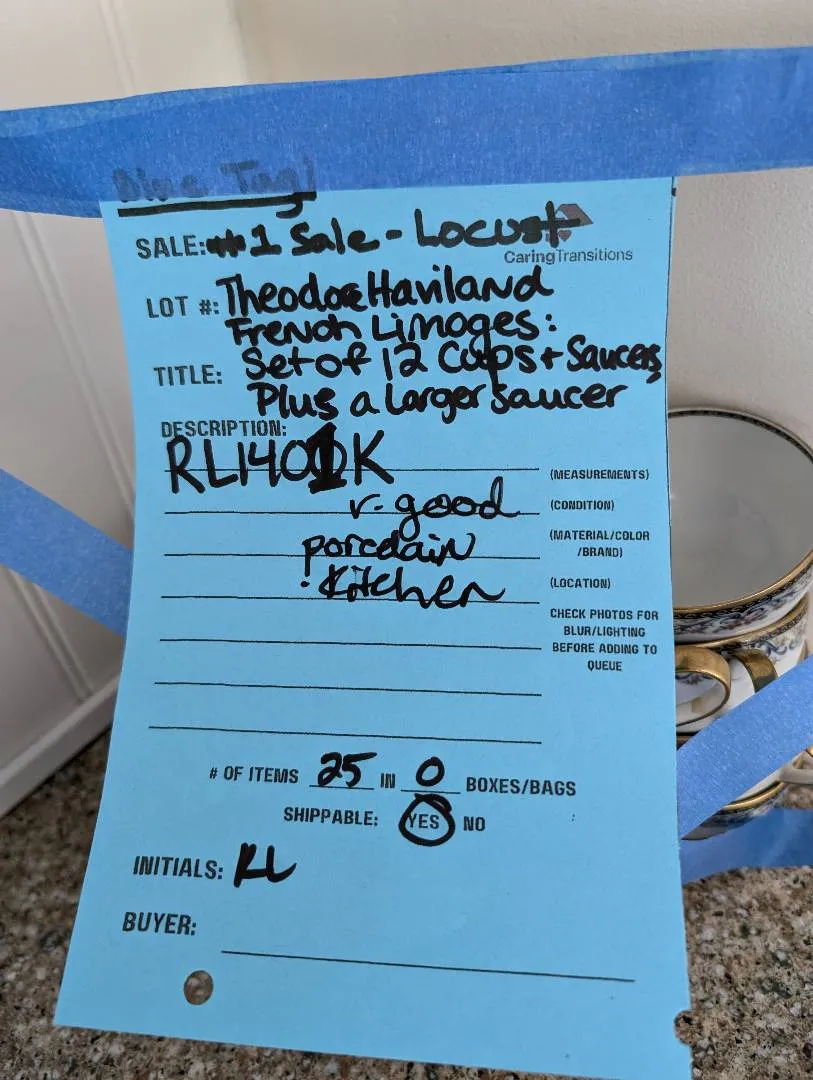 Blue Tag!
SALE: #1 Sale - Locust
CaringTransitions
LOT #: Theodore Haviland
French Limoges:
TITLE: Set of 12 Cups + Saucers
Plus a larger saucer
DESCRIPTION:
RL1401K
(MEASUREMENTS)
v. good (CONDITION)
porcelain (MATERIAL/COLOR
/BRAND)
Kitchen (LOCATION)
CHECK PHOTOS FOR
BLUR/LIGHTING
BEFORE ADDING TO
QUEUE
# OF ITEMS 25 IN 0 BOXES/BAGS
SHIPPABLE: YES NO
INITIALS: RL
BUYER: